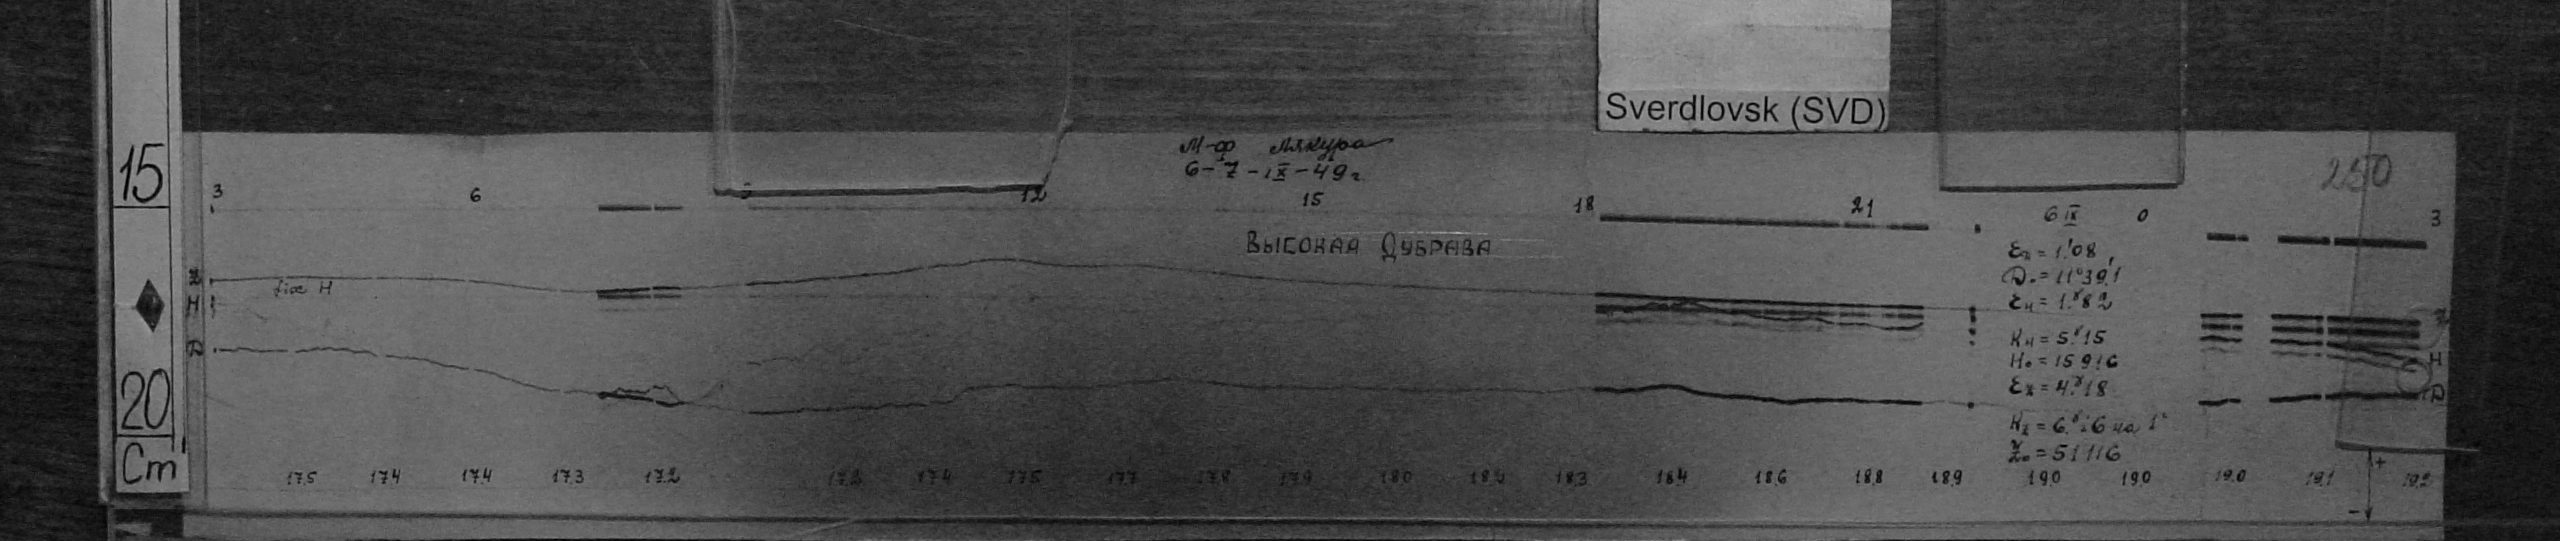 15
20
Cm
Sverdlovsk (SVD)
М-ф
6-7-IX-49г.
250
3 6 12 15 18 21 0 3
6 IX
ВЫСОКАЯ ДУБРАВА
Z
H
D
fix H
D₀ = 11°39,1
εH = 1.ˠ82
KH = 5.ˠ15
H₀ = 15916
εz = 4.ˠ18
Z₀ = 51116
H
D
+
-
17.5 17.4 17.4 17.3 17.2 17.3 17.4 17.5 17.7 17.8 17.9 18.0 18.2 18.3 18.4 18.6 18.8 18.9 19.0 19.0 19.0 19.1 19.2